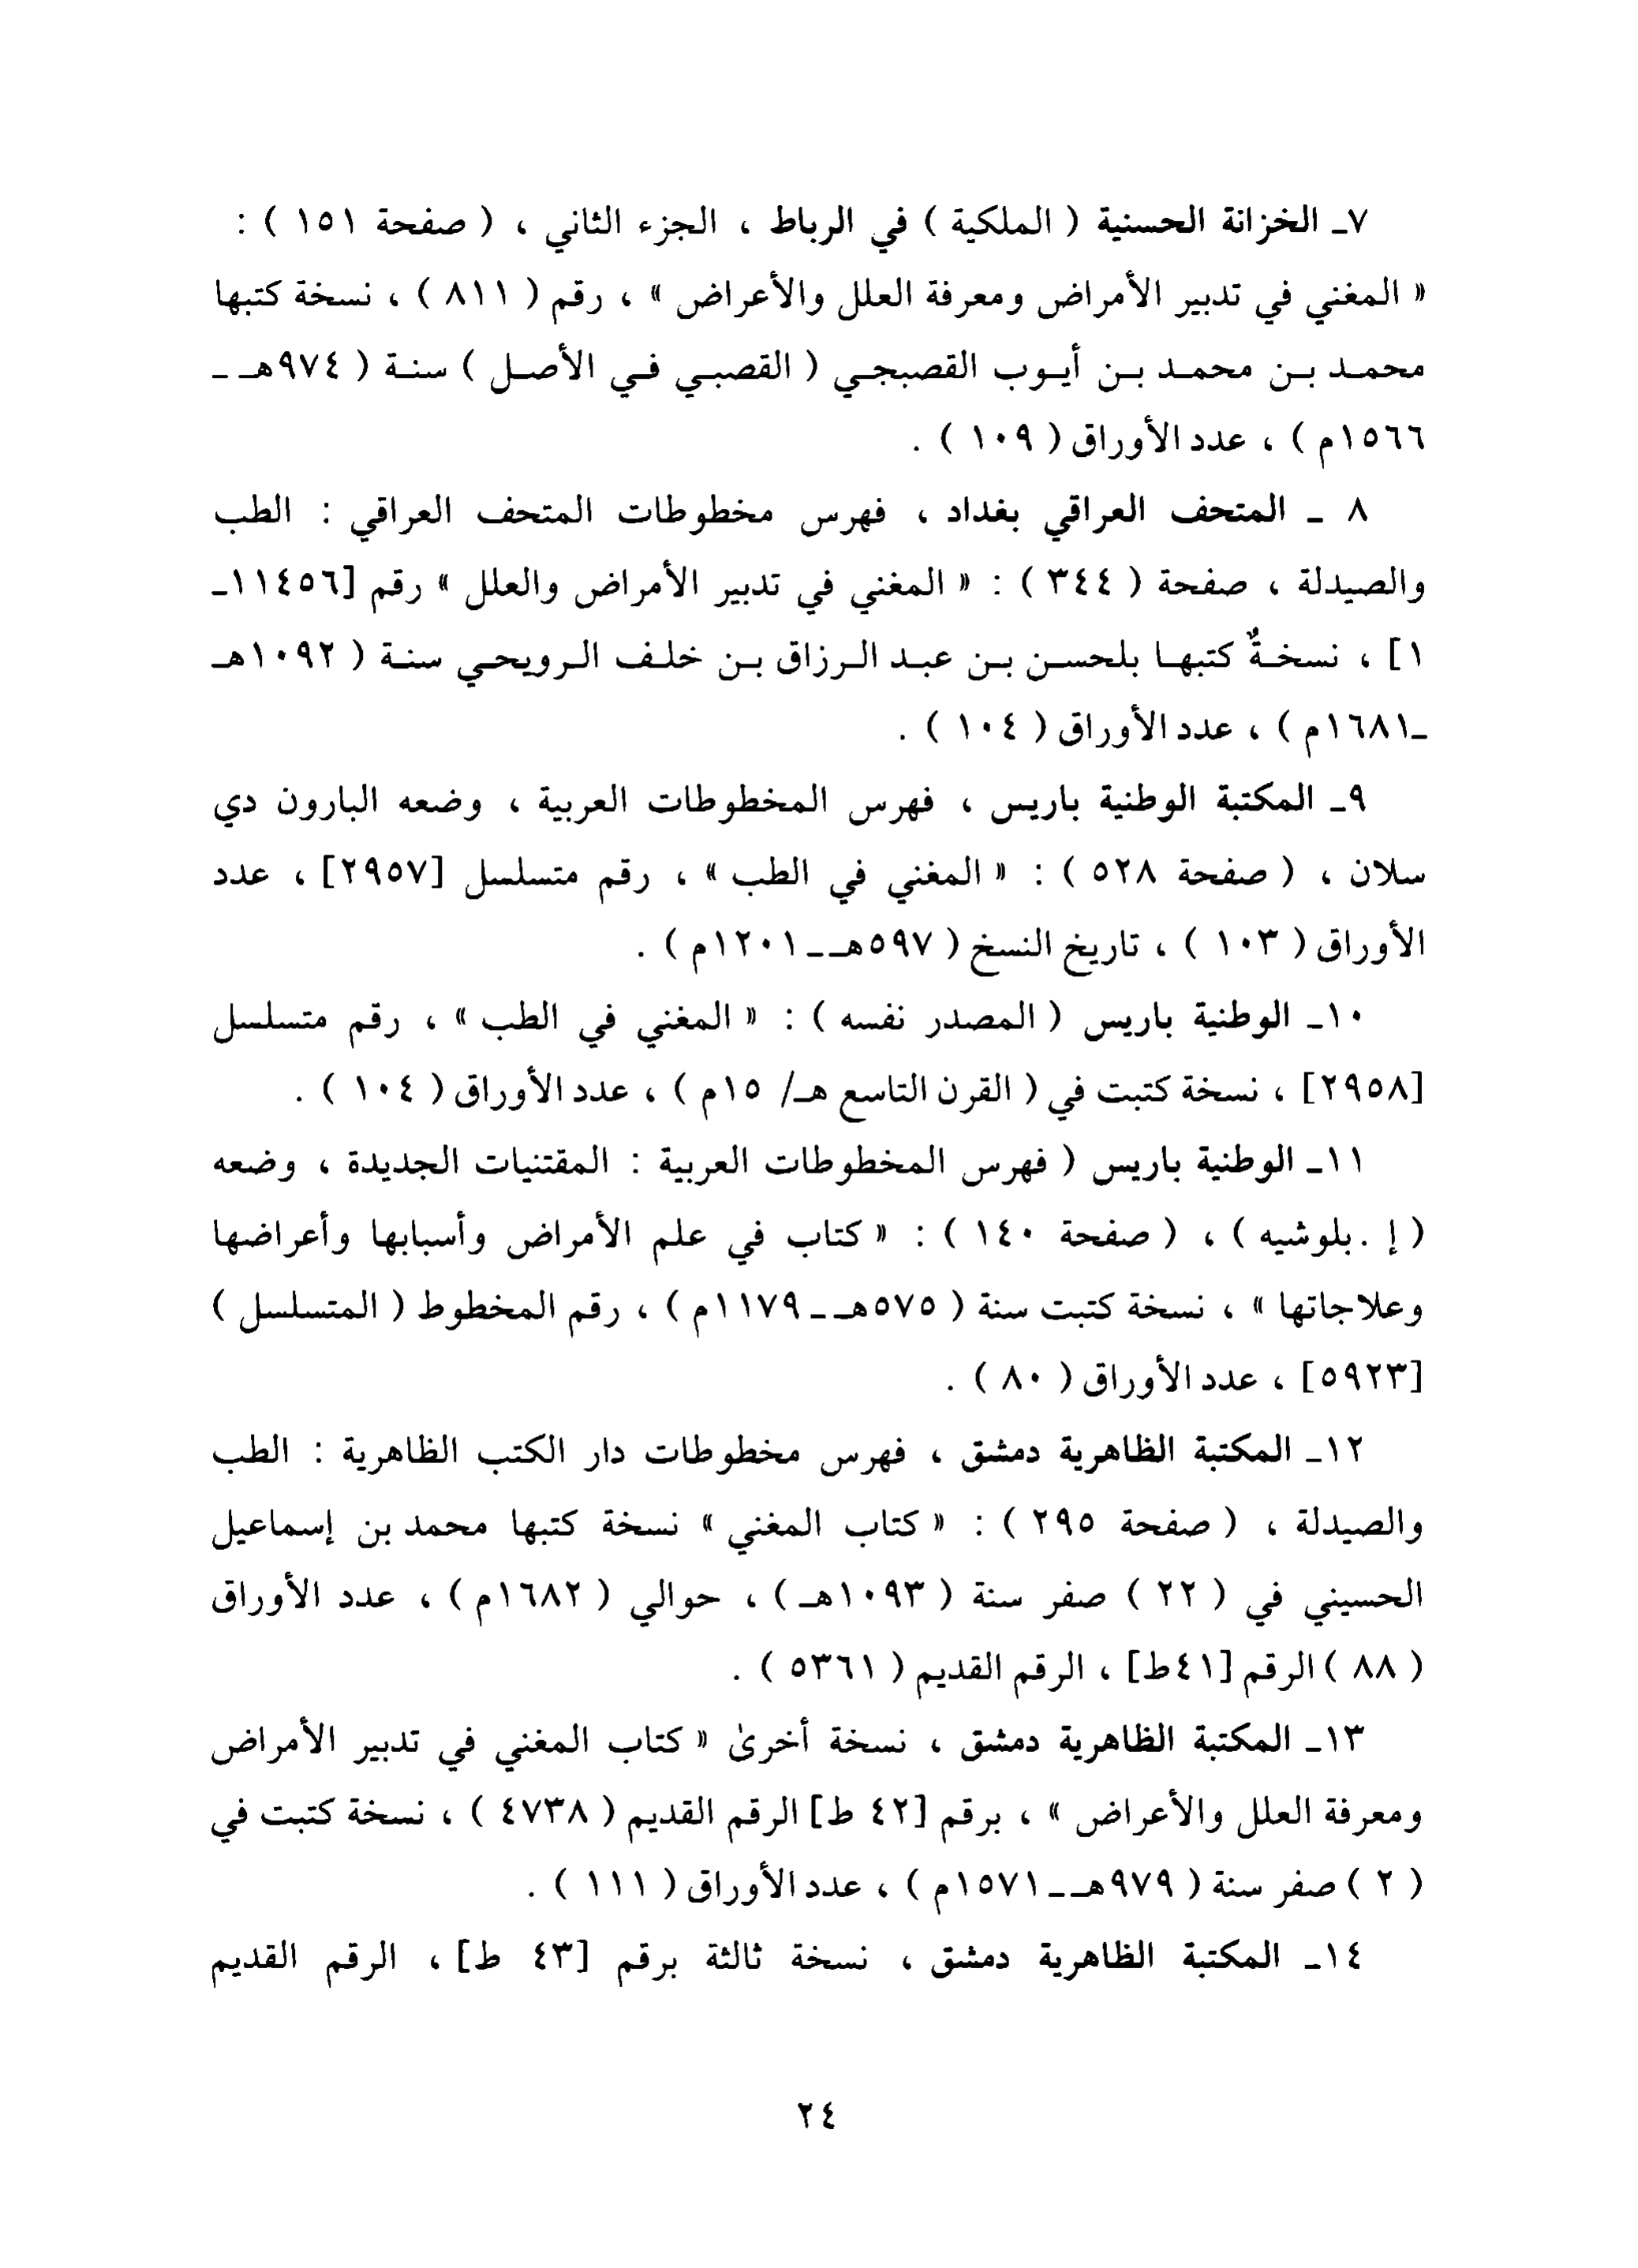 ٧ـ الخزانة الحسنية ( الملكية ) في الرباط ، الجزء الثاني ، ( صفحة ١٥١ ) :
« المغني في تدبير الأمراض ومعرفة العلل والأعراض » ، رقم ( ٨١١ ) ، نسخة كتبها
محمد بن محمد بن أيوب القصبجي ( القصبي في الأصل ) سنة ( ٩٧٤هـ ـ
١٥٦٦م ) ، عدد الأوراق ( ١٠٩ ) .
٨ ـ المتحف العراقي بغداد ، فهرس مخطوطات المتحف العراقي : الطب
والصيدلة ، صفحة ( ٣٤٤ ) : « المغني في تدبير الأمراض والعلل » رقم [١١٤٥٦ـ
١] ، نسخةٌ كتبها بلحسن بن عبد الرزاق بن خلف الرويحي سنة ( ١٠٩٢هـ
ـ١٦٨١م ) ، عدد الأوراق ( ١٠٤ ) .
٩ـ المكتبة الوطنية باريس ، فهرس المخطوطات العربية ، وضعه البارون دي
سلان ، ( صفحة ٥٢٨ ) : « المغني في الطب » ، رقم متسلسل [٢٩٥٧] ، عدد
الأوراق ( ١٠٣ ) ، تاريخ النسخ ( ٥٩٧هـ ـ ١٢٠١م ) .
١٠ـ الوطنية باريس ( المصدر نفسه ) : « المغني في الطب » ، رقم متسلسل
[٢٩٥٨] ، نسخة كتبت في ( القرن التاسع هـ/ ١٥م ) ، عدد الأوراق ( ١٠٤ ) .
١١ـ الوطنية باريس ( فهرس المخطوطات العربية : المقتنيات الجديدة ، وضعه
( إ .بلوشيه ) ، ( صفحة ١٤٠ ) : « كتاب في علم الأمراض وأسبابها وأعراضها
وعلاجاتها » ، نسخة كتبت سنة ( ٥٧٥هـ ـ ١١٧٩م ) ، رقم المخطوط ( المتسلسل )
[٥٩٢٣] ، عدد الأوراق ( ٨٠ ) .
١٢ـ المكتبة الظاهرية دمشق ، فهرس مخطوطات دار الكتب الظاهرية : الطب
والصيدلة ، ( صفحة ٢٩٥ ) : « كتاب المغني » نسخة كتبها محمد بن إسماعيل
الحسيني في ( ٢٢ ) صفر سنة ( ١٠٩٣هـ ) ، حوالي ( ١٦٨٢م ) ، عدد الأوراق
( ٨٨ ) الرقم [٤١ط] ، الرقم القديم ( ٥٣٦١ ) .
١٣ـ المكتبة الظاهرية دمشق ، نسخة أخرىٰ « كتاب المغني في تدبير الأمراض
ومعرفة العلل والأعراض » ، برقم [٤٢ ط] الرقم القديم ( ٤٧٣٨ ) ، نسخة كتبت في
( ٢ ) صفر سنة ( ٩٧٩هـ ـ ١٥٧١م ) ، عدد الأوراق ( ١١١ ) .
١٤ـ المكتبة الظاهرية دمشق ، نسخة ثالثة برقم [٤٣ ط] ، الرقم القديم
٢٤